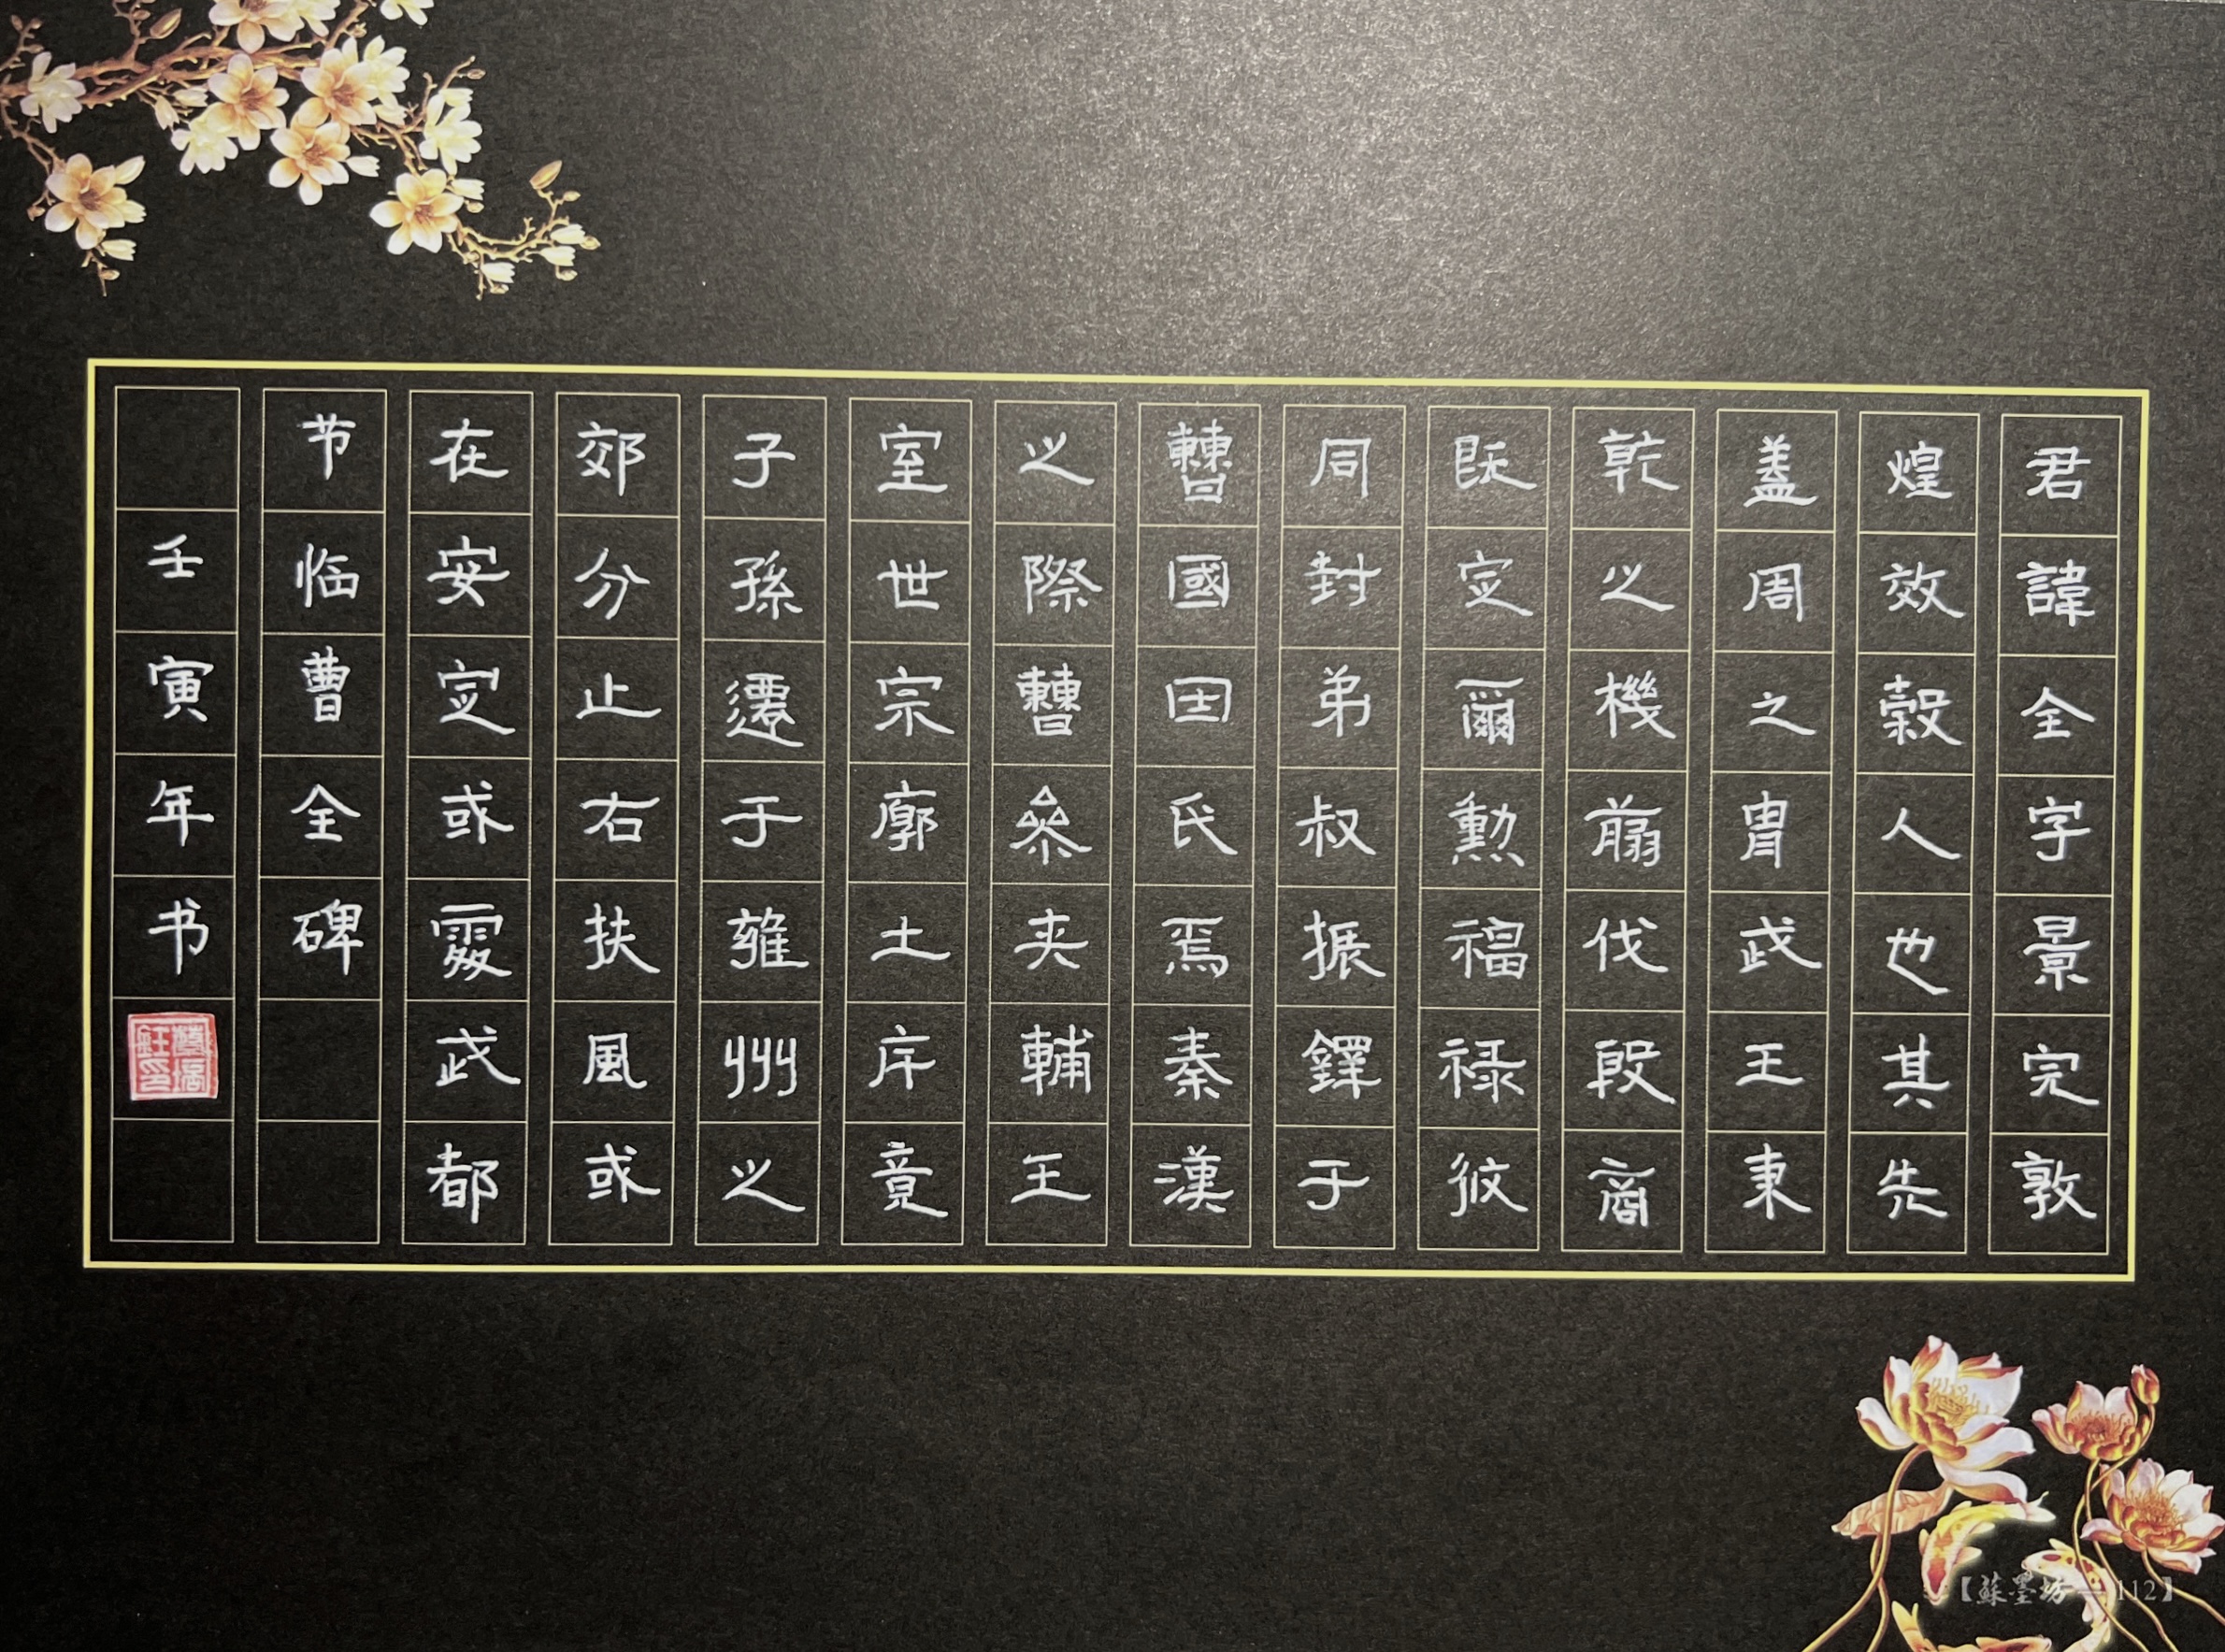 君諱全字景完敦
煌效穀人也其先
蓋周之胄武王秉
乾之機翦伐殷商
既定爾勳福祿攸
同封弟叔振鐸于
曹國因氏焉秦漢
之際曹參夾輔王
室世宗廓土斥竟
子孫遷于雍州之
郊分止右扶風或
在安定或處武都
节临曹全碑
壬寅年书
【蘇墨坊—112】